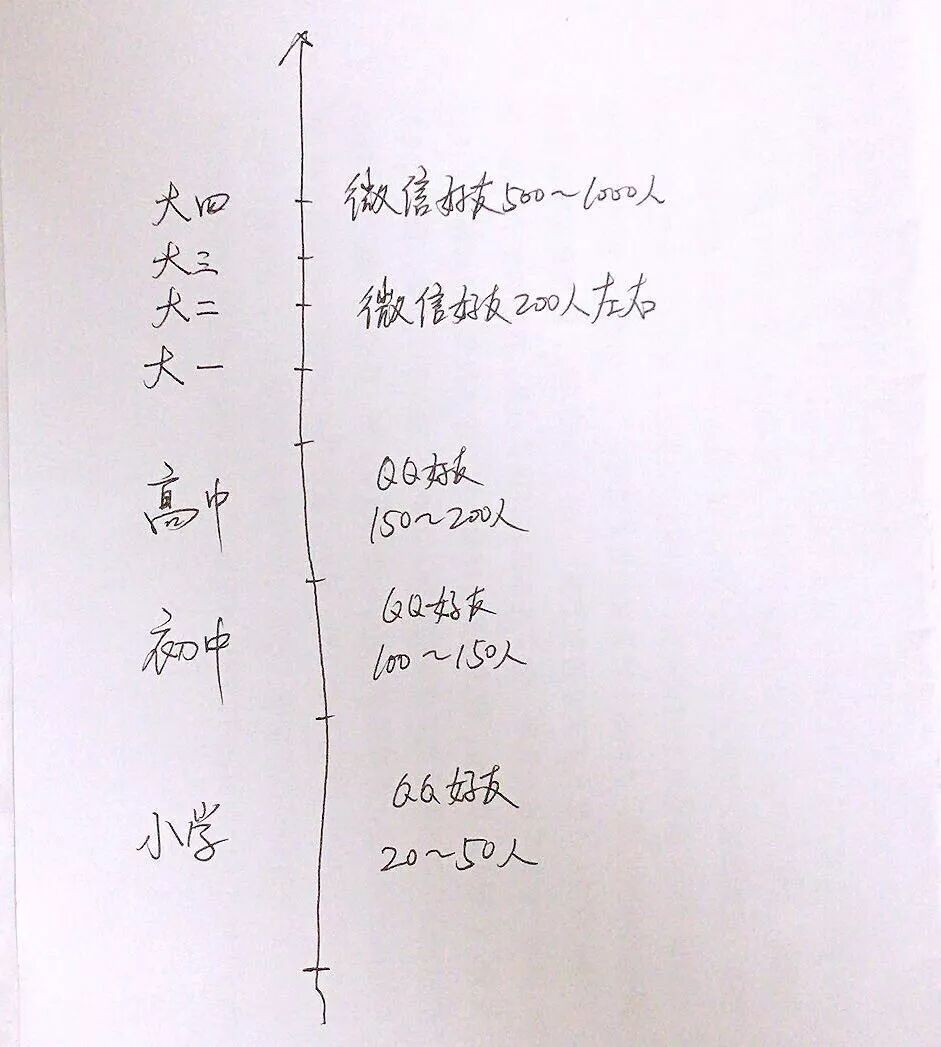 大四 微信好友500~1000人
大三
大二 微信好友200人左右
大一
QQ好友
高中 150~200人
QQ好友
初中 100~150人
QQ好友
小学 20~50人